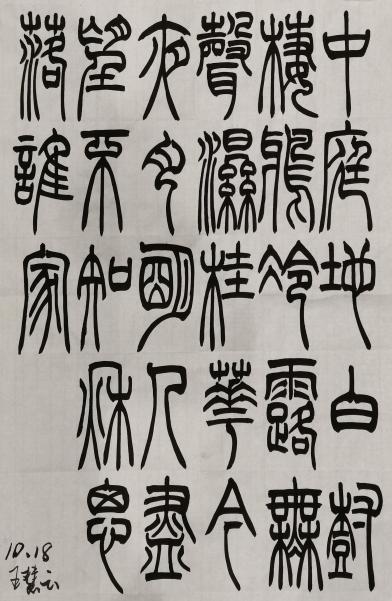 中庭地白樹
棲鴉冷露無
聲濕桂華今
夜月朙人盡
望不知秋思
落誰家
10.18